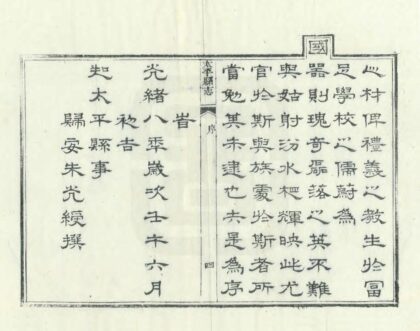 之材俾禮義之教生於富
足學校之儒蔚為
國器則瑰奇磊落之英不難
與姑射汾水相輝映此尤
官於斯與族處於斯者所
當勉其未逮也夫是為序
太平縣志
序
四
旹
光緒八年歲次壬午六月
初吉
知太平縣事
歸安朱光綬撰